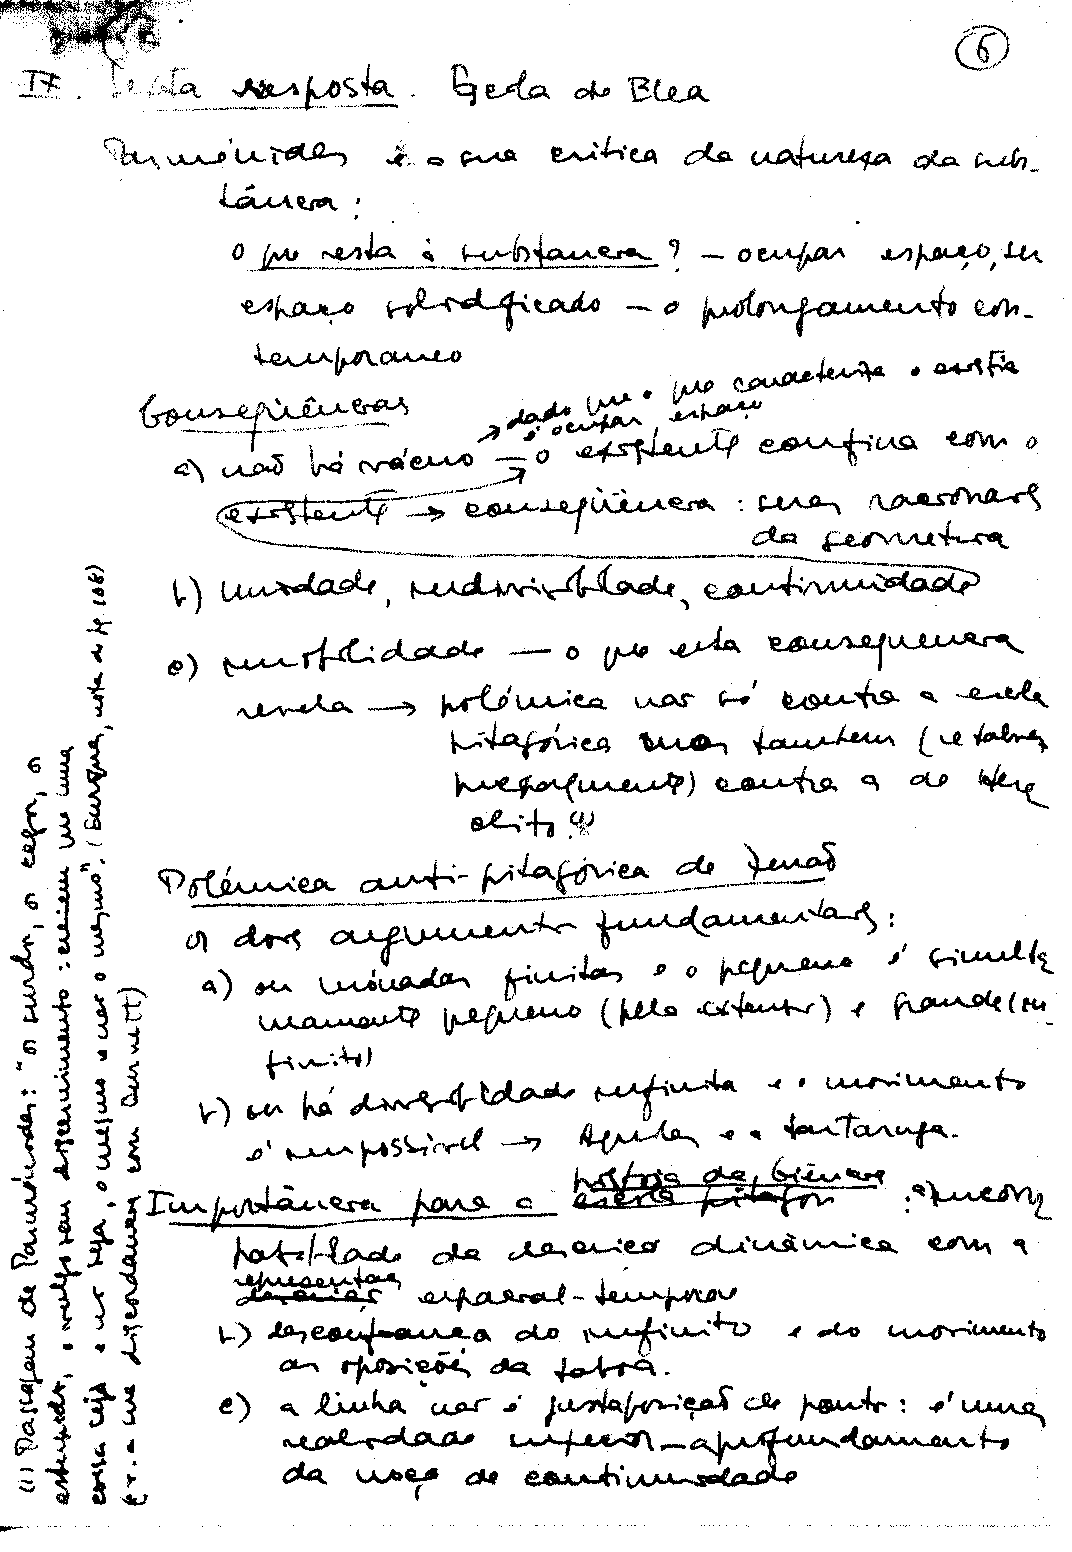 6
IV. Sexta resposta. Escola de Elea
Parménides e a sua critica da natureza da subs-
tância:
O que resta à substancia? – ocupar espaço, ser
espaço solidificado – o prolongamento con-
temporaneo
Conseqüências
→ dado que o que caracteriza o
é ocupar espaço
a) não há vácuo – o existente confina com o
existente → conseqüência: seres racionais
da geometria
b) Unidade, indivisiblade, continuidade
c) imobilidade – o que esta consequencia
revela → polémica não só contra a escola
pitagórica mas tambem (e talvez
) contra a de Her
aclito (1)
Polémica anti-pitagórica de Zenão
Os dois argumentos fundamentais:
a) ou mónadas finitas e o pequeno é simulta
neamente pequeno (pelo exterior) e grande (in-
finito)
b) ou há divisiblidade infinita e o movimento
é impossivel → Aquiles e a tartaruga.
história da ciência
Importância para a escola pitagor : a) incom
patiblade da dinâmica com a
representaç
espacial-temporal
b) desconfiança do infinito e do movimento
as oposições da taboa.
c) a linha não é justaposição de pontos: é uma
realidade – aprofundamento
da noção de continuidade
(1) Passagem de Parménides: "os surdos, os cegos, os
estupidos, o vulgo sem discernimento: creiem que uma
coisa seja e não seja, o mesmo e não o mesmo". ( , nota da pg. 108)
(v. a sua discordancia com Burnett)